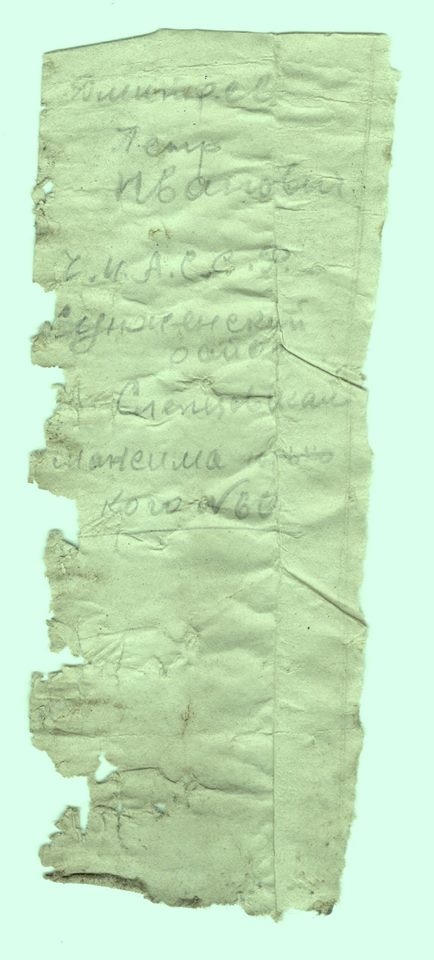 Петр
Иванович
Ч.И.А.С.С.Р.
Сунженский
район
Слепцовская
Максима
кого №60